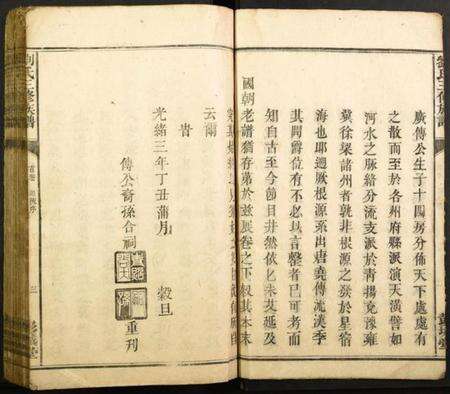 廣傳公生子十四房分佈天下處處有
之散而至於各州府縣派演天潢譬如
河水之脈絡分流支派於青揚兗豫雍
冀徐梁諸州者孰非根源之發於星宿
海也耶遡厥根源系出唐堯傳流漢季
其間爵位有不必以言罄者已可考而
知自古至今節目井然依匕未艾延及
國朝老譜猶存弟於玆展卷之下叙其本末
云爾
旹
光緒三年丁丑蒲月 穀旦
傳公裔孫合祠 重刊
劉氏三修族譜
首卷
三
彭城堂